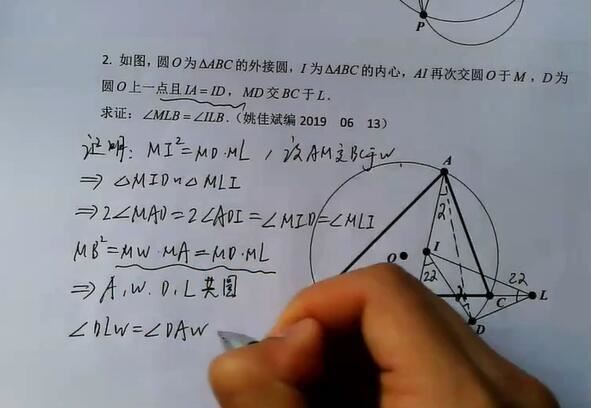 P
2. 如图,圆O为△ABC的外接圆,I为△ABC的内心,AI再次交圆O于M,D为
圆O上一点且IA=ID,MD交BC于L.
求证:∠MLB=∠ILB.(姚佳斌编 2019 06 13)
证明: MI²=MD·ML , 设AM交BC于W
⇒ △MID∽△MLI
⇒ 2∠MAD=2∠ADI=∠MID=∠MLI
MB²=MW·MA=MD·ML
⇒ A,W.D,L共圆
∠DLW=∠DAW
A
2
I
O
22
22
C
L
D